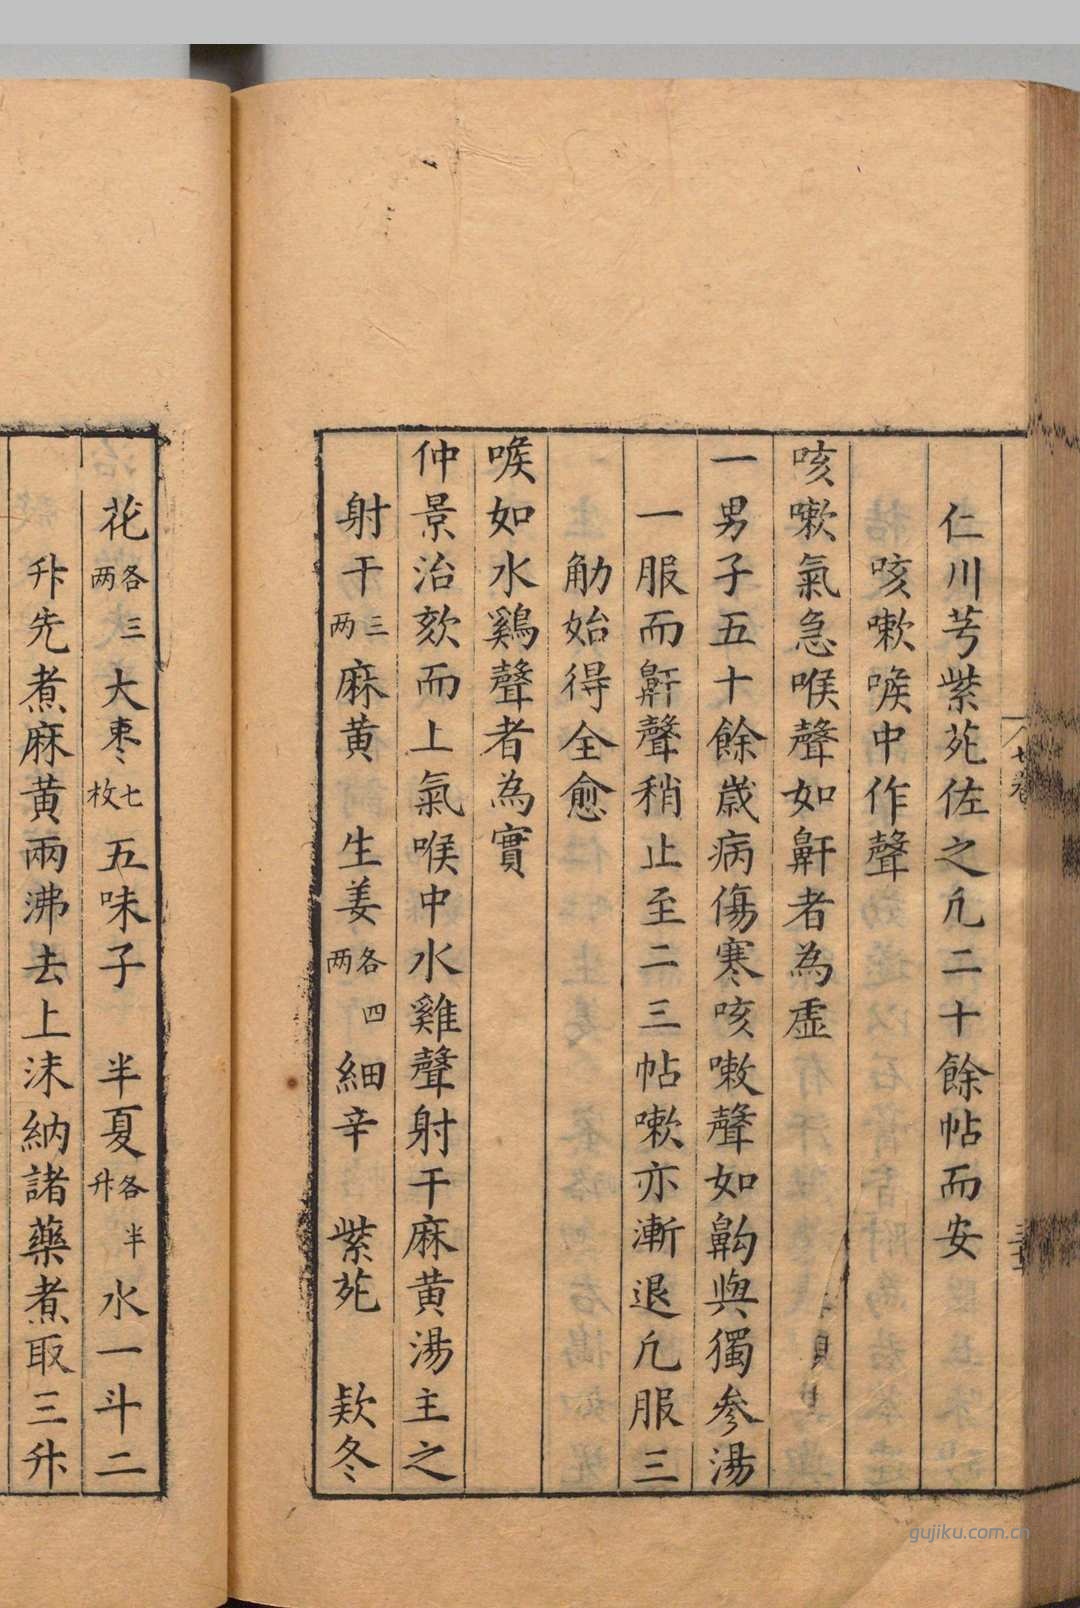 仁川芎紫苑佐之凡二十餘帖而安
咳嗽喉中作聲
咳嗽氣急喉聲如鼾者為虛
一男子五十餘歲病傷寒咳嗽聲如齁與獨參湯
一服而鼾聲稍止至二三帖嗽亦漸退凡服三
觔始得全愈
喉如水鷄聲者為實
仲景治欬而上氣喉中水雞聲射干麻黄湯主之
射干三两 麻黄 生姜各四两 細辛 紫苑 欵冬
花各三两 大枣七枚 五味子 半夏各半升 水一斗二
升先煮麻黄兩沸去上沫納諸藥煮取三升
七卷
gujiku.com.cn